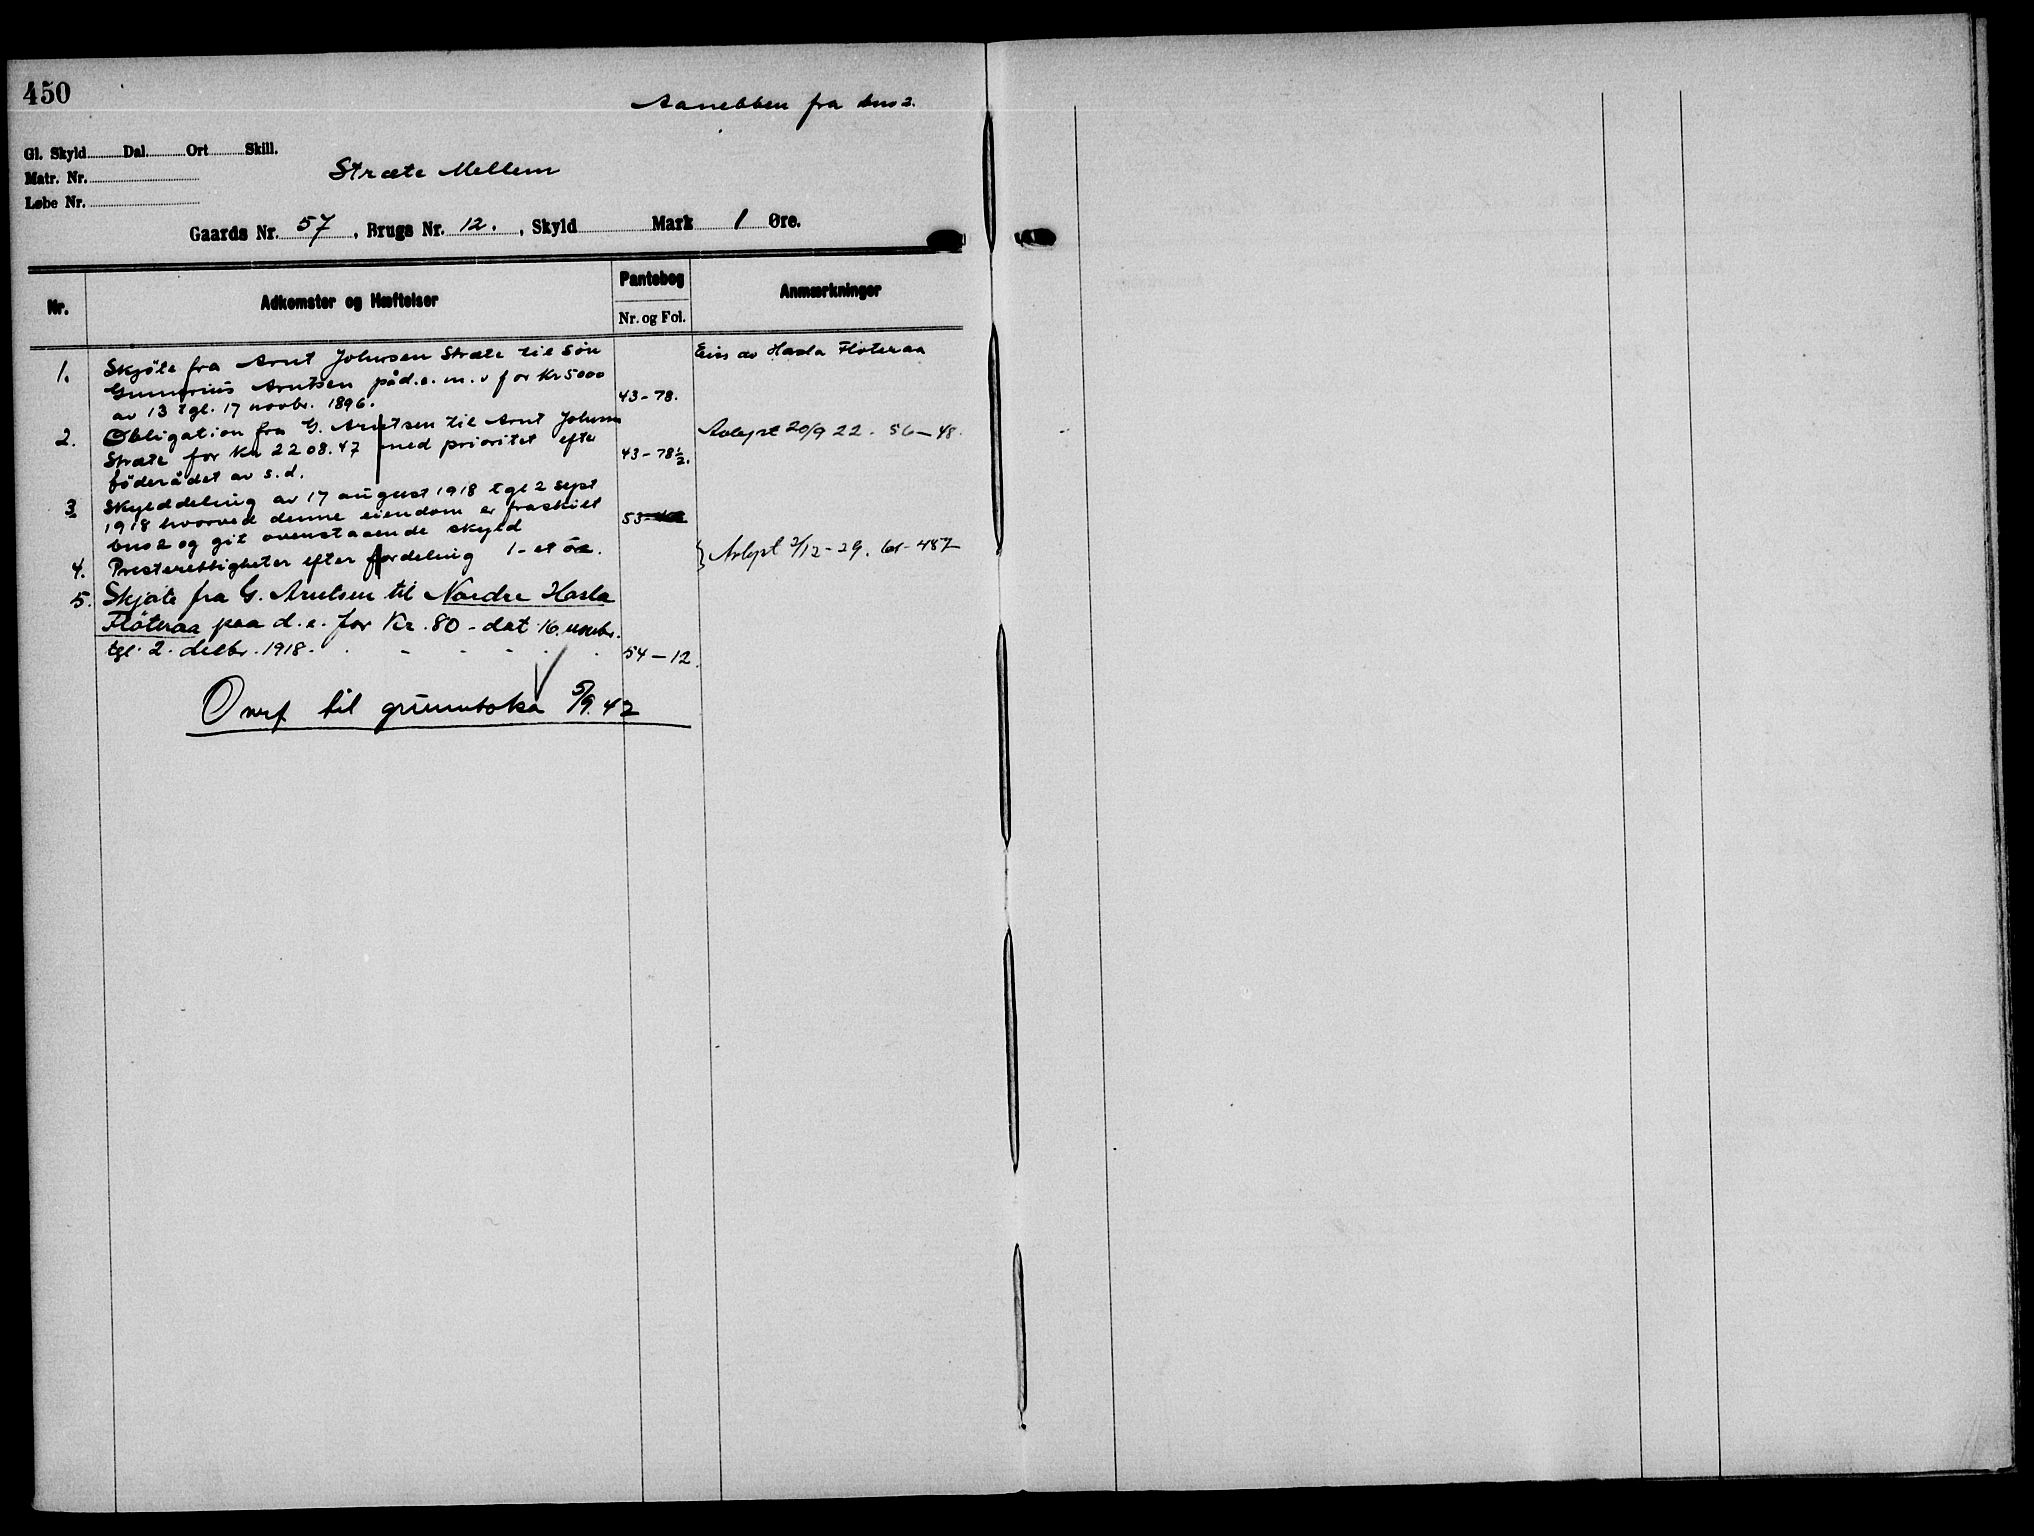 450
Aanebben fra bno 2.
Gl. Skyld Dal. Ort Skill.
Matr. Nr.
Løbe Nr.
Stræte Mellem
Gaards Nr. 57, Brugs Nr. 12., Skyld Mark 1 Øre.
Nr. Adkomster og Hæftelser Pantebog Nr. og Fol. Anmærkninger
1. Skjöte fra Arnt Johnsen Stræte til sön Eies av Hasla Flöteraa
Gunnerius Arntsen på d.e. m.v for Kr 5000
av 13 tgl. 17 novbr. 1896. 43-78.
2. Obligation fra G. Arntsen til Arnt Johnsen Avlyst 20/9 22. 56-48.
Stræte for Kr 2208.47 med prioritet efter
föderådet av s.d. 43-78½.
3 Skylddeling av 17 august 1918 tgl 2 sept
1918 hvorved denne eiendom er fraskilt
bno 2 og git ovenstaaende skyld 53-
1- et öre.
4. Presterettigheter efter fordeling } Avlyst 2/12-29. 61-487
5. Skjøte fra G. Arntsen til Nordre Hasla
Fløteraa paa d.e. for Kr. 80 - dat 16. novbr.
tgl. 2. decbr. 1918. 54-12.
Overf til grunnboka 5/9.42